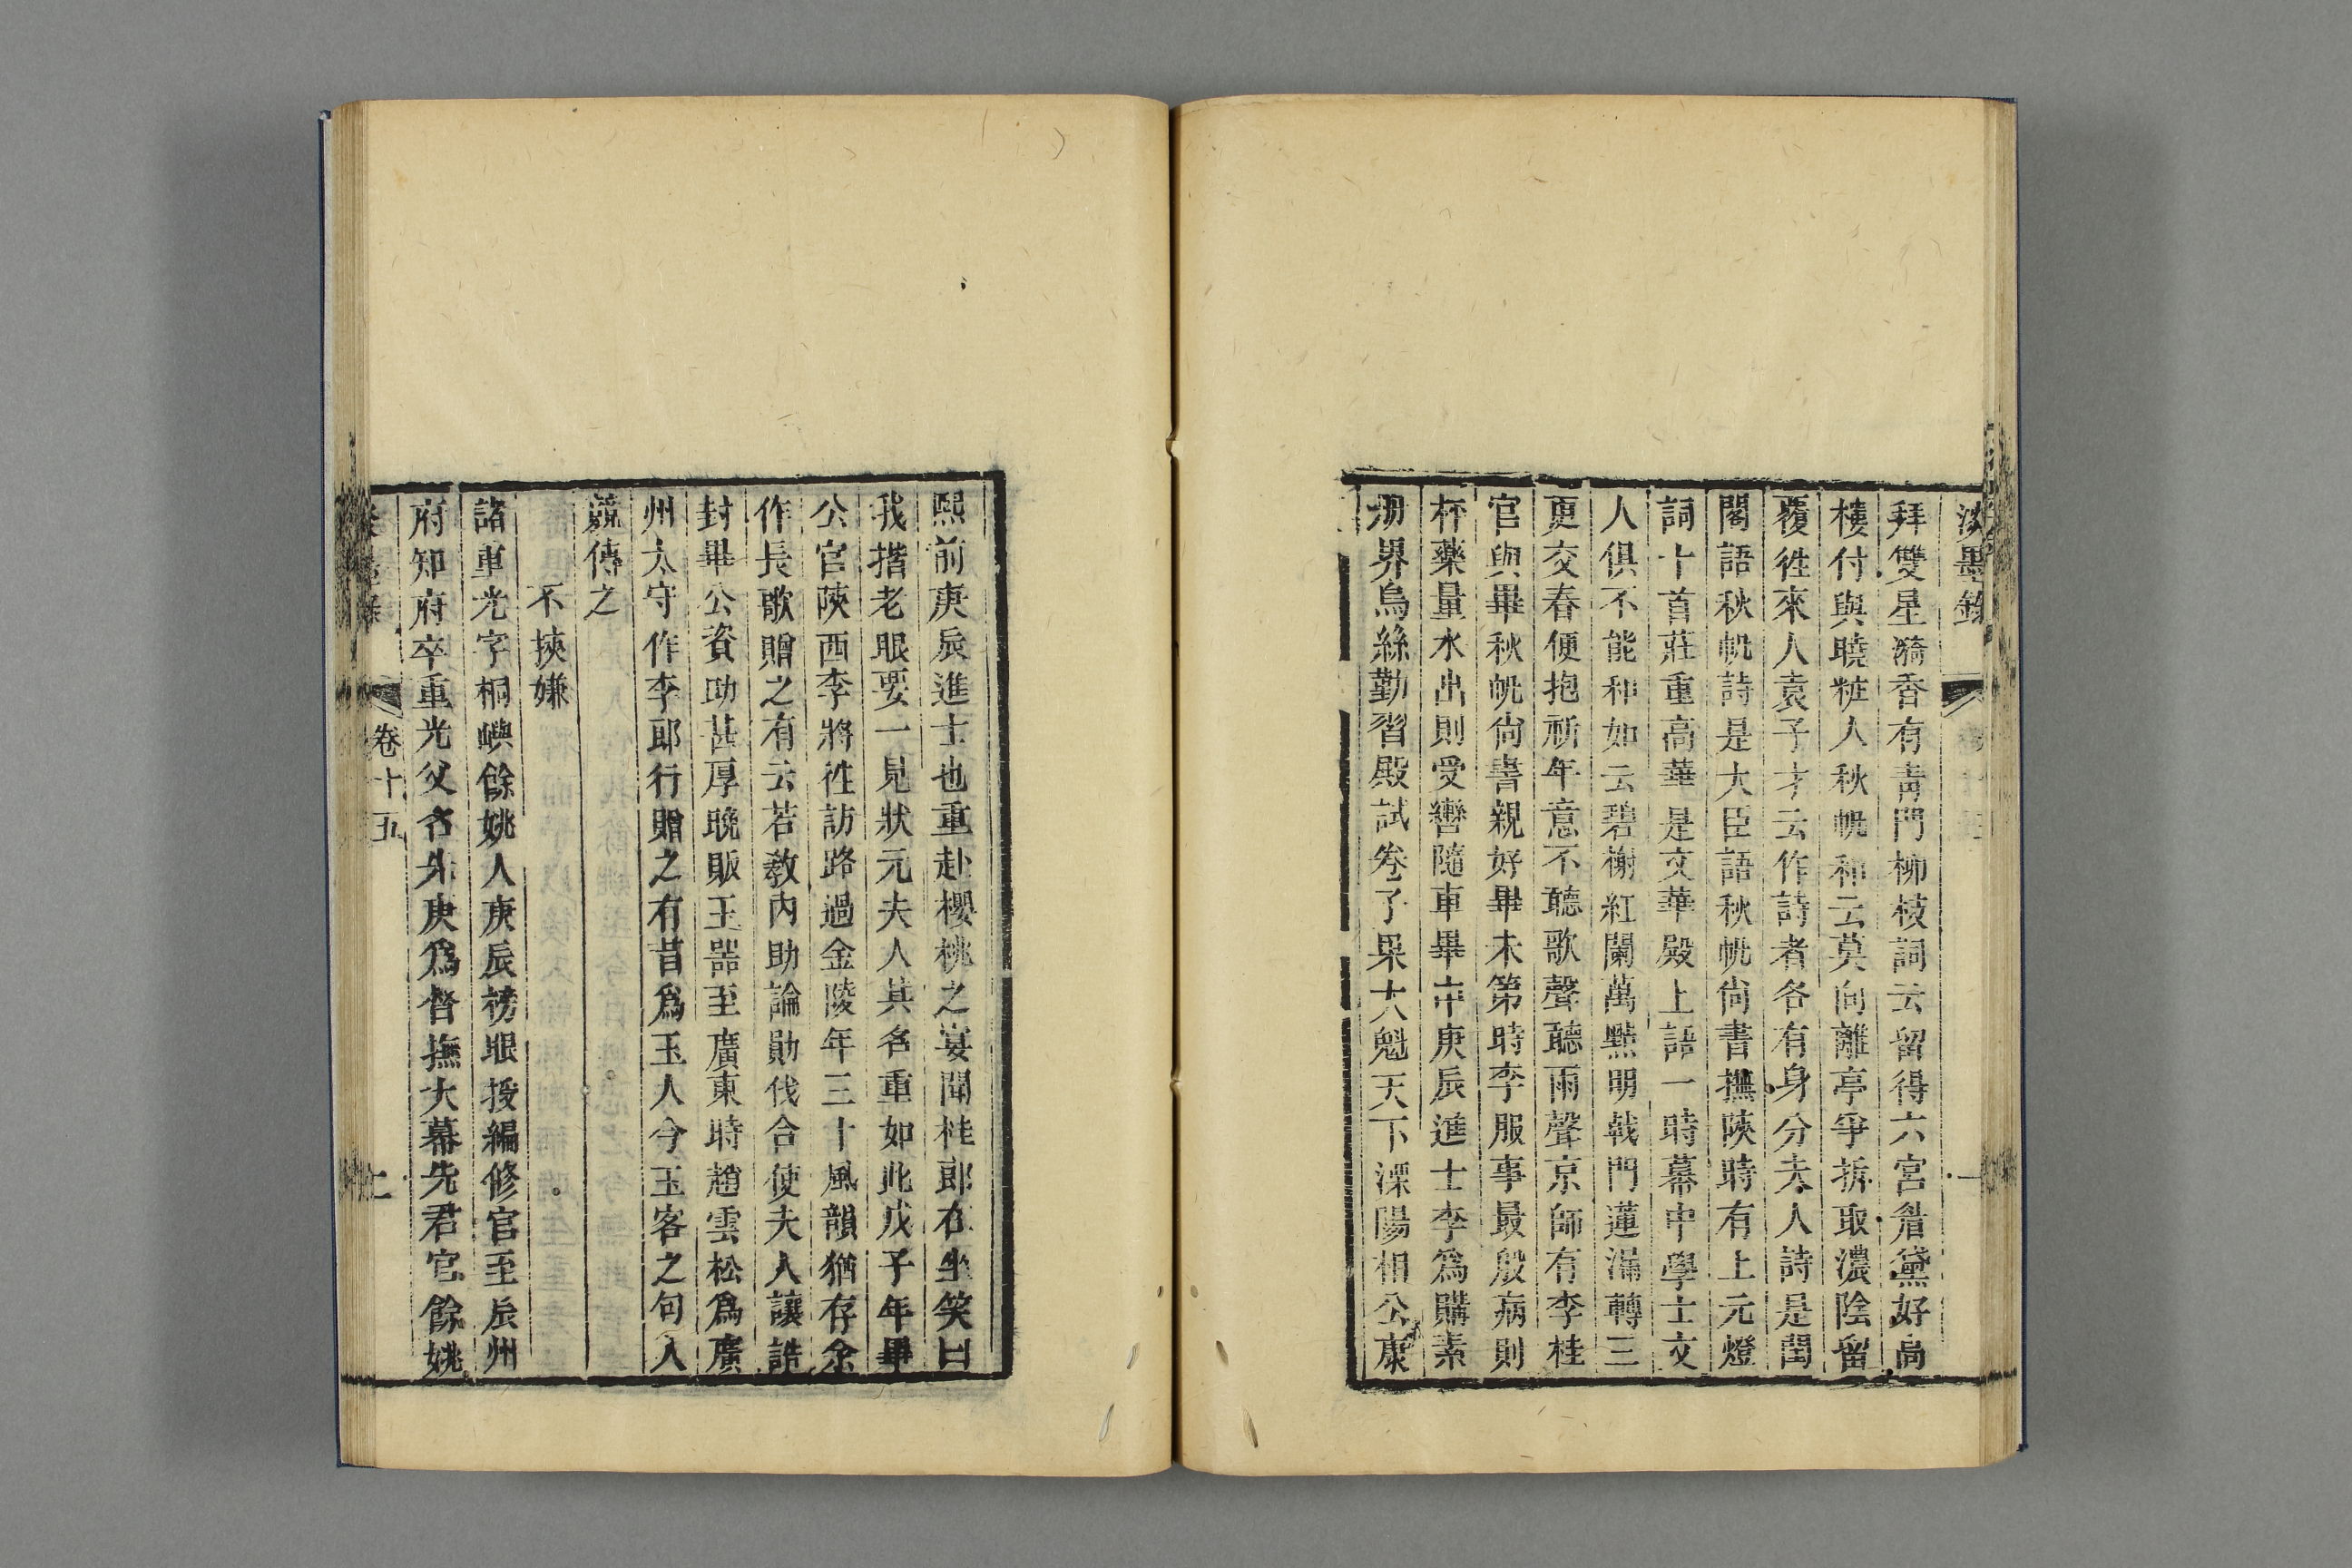 淡墨錄
拜雙星漪香有靑門柳枝詞云留得六宮眉黛好高
樓付與曉粧人秋帆和云莫向離亭爭折取濃陰留
覆徃來人袁子才云作詩者各有身分夫人詩是閨
閣語秋帆詩是大臣語秋帆尙書撫陝時有上元燈
詞十首莊重高華是文華殿上語一時幕中學士文
人俱不能和如云碧榭紅闌萬點明戟門蓮漏轉三
更交春便抱祈年意不聽歌聲聽雨聲京師有李桂
官與畢秋帆尙書親好畢未第時李服事最殷病則
秤藥量水出則受轡隨車畢中庚辰進士李爲購素
册界烏絲勤習殿試卷子果大魁天下溧陽相公康
熙前庚辰進士也重赴櫻桃之宴聞桂郎在坐笑曰
我揩老眼要一見狀元夫人其名重如此戊子年畢
公官陝西李將徃訪路過金陵年三十風韻猶存余
作長歌贈之有云若敎內助論勛伐合使夫人讓誥
封畢公資助甚厚晚販玉器至廣東時趙雲松爲廣
州太守作李郎行贈之有昔爲玉人今玉客之句人
競傳之
不挾嫌
諸重光字桐嶼餘姚人庚辰榜眼授編修官至辰州
府知府卒重光父名先庚爲督撫大幕先君官餘姚
卷十五